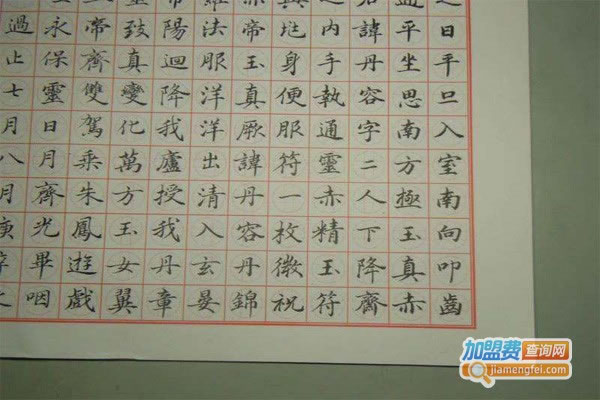 日平旦入室南向叩齒
平坐思南方極玉真赤
諱丹容字二人下降齊
內手執通靈赤精玉符
兆身便服符一枚微祝
帝玉真厥諱丹容丹錦
法服洋洋出清入玄晏
陽迴降我廬授我丹章
致真變化萬方玉女翼
帝齊雙駕乘朱鳳遊戲
永保靈日月齊光畢咽
過止七月八月庚
加盟费查询网
jiamengfei.com